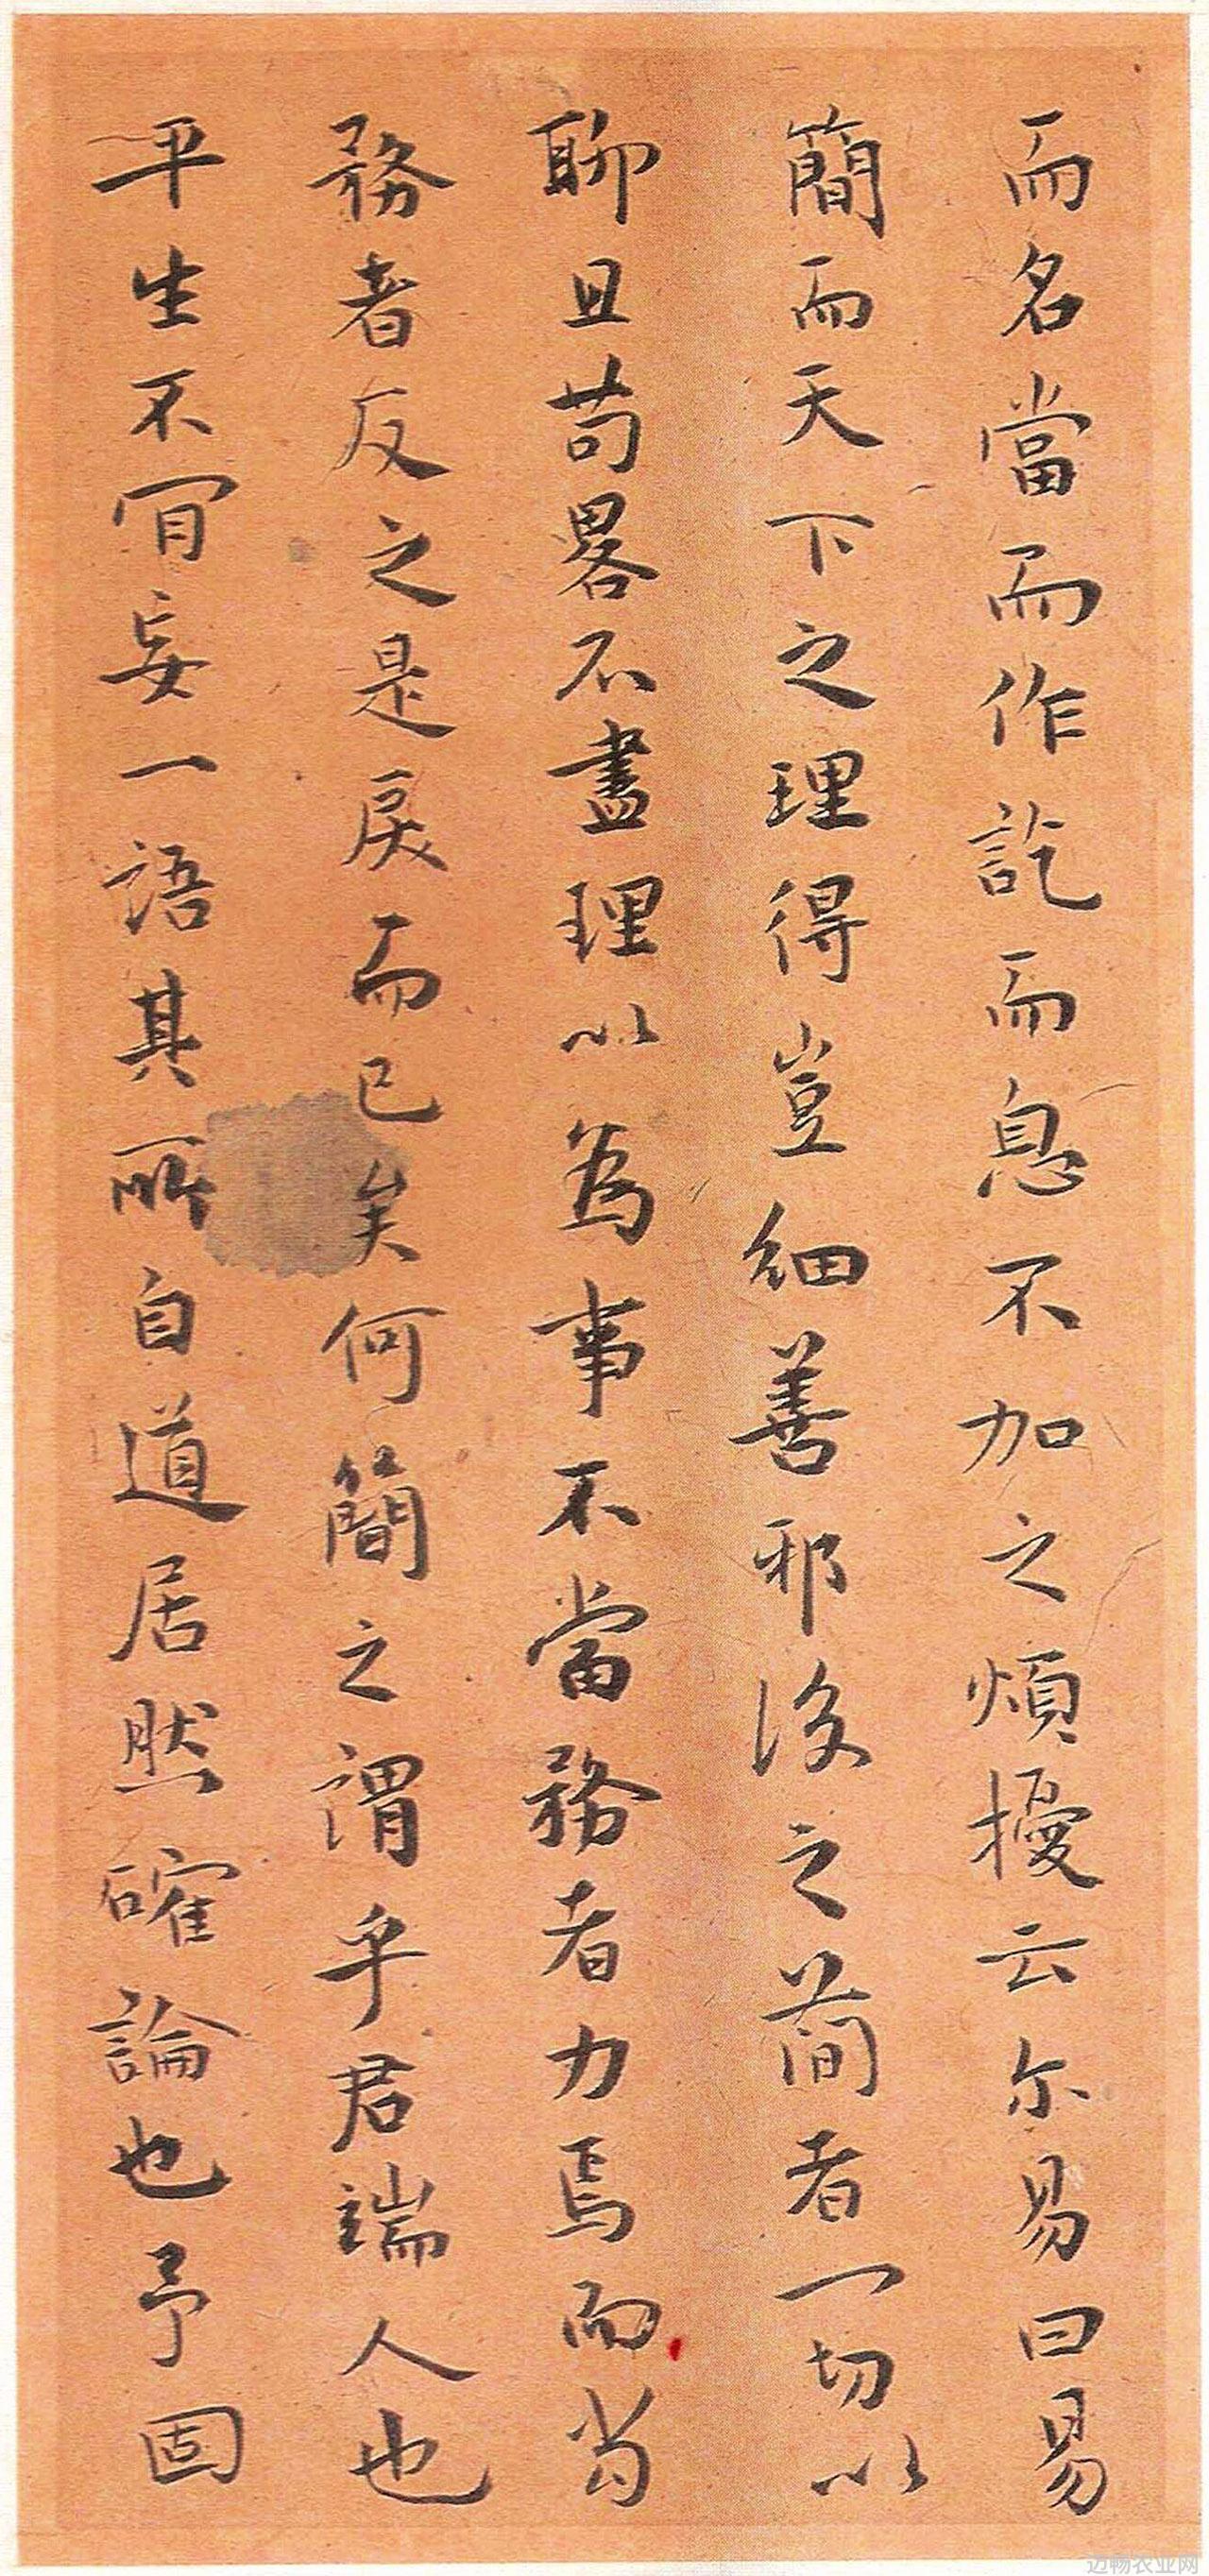 而名當而作訖而息不加之煩擾云尔易曰易
簡而天下之理得豈細善邪後之簡者一切以
聊且苟畧不盡理以為事不當務者力焉而當
務者反之是戾而已矣何簡之謂乎君端人也
平生不肎妄一語其所自道居然確論也予固
迈畅农业网